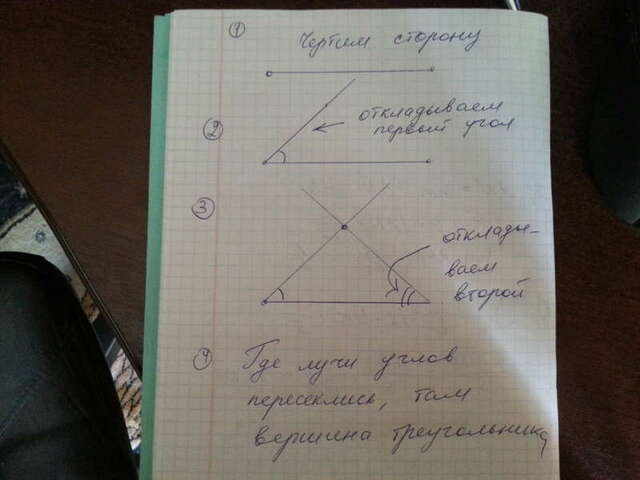 ① Чертим сторону
② откладываем
первый угол
③ отклады-
ваем
второй
④ Где лучи углов
пересеклись, там
вершина треугольника